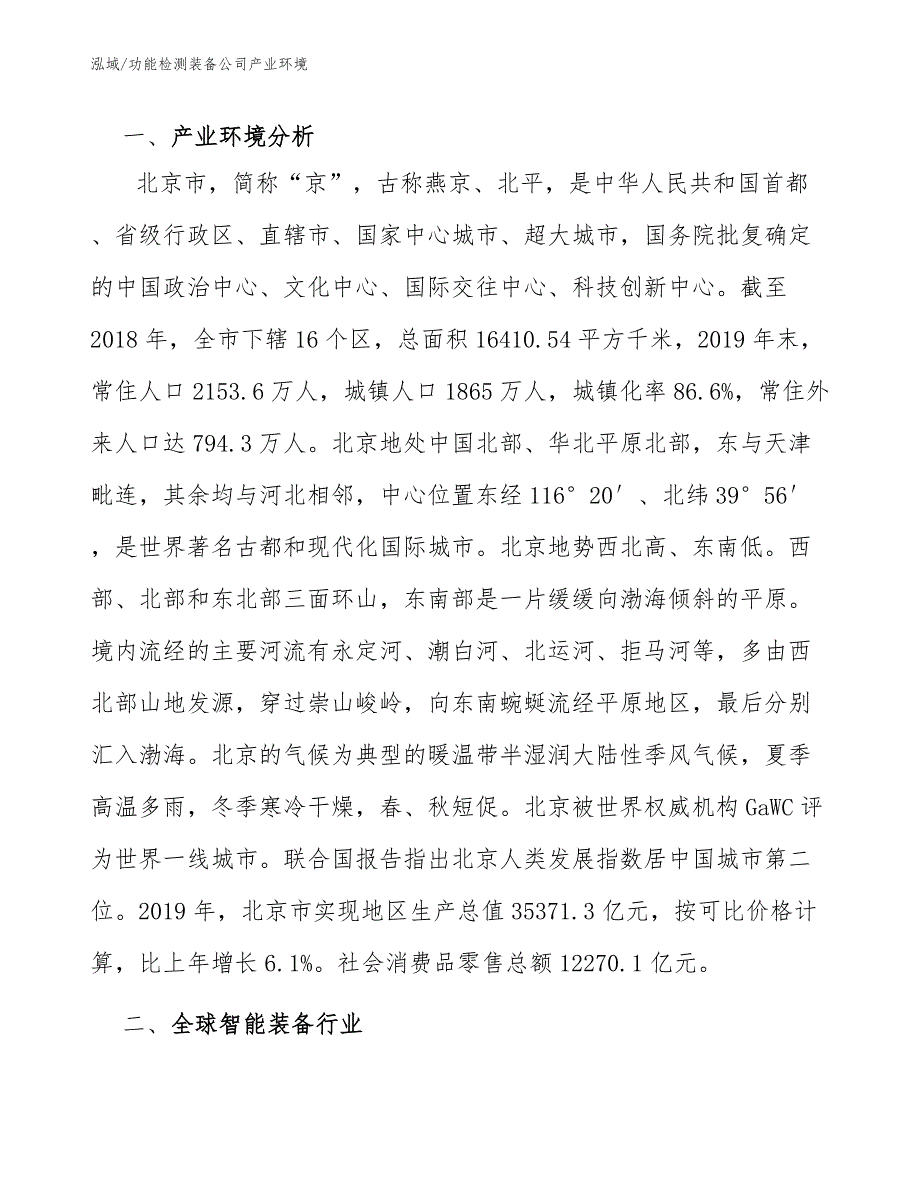 泓域/功能检测装备公司产业环境
一、产业环境分析
北京市，简称“京”，古称燕京、北平，是中华人民共和国首都
、省级行政区、直辖市、国家中心城市、超大城市，国务院批复确定
的中国政治中心、文化中心、国际交往中心、科技创新中心。截至
2018 年，全市下辖 16 个区，总面积 16410.54 平方千米，2019 年末，
常住人口 2153.6 万人，城镇人口 1865 万人，城镇化率 86.6%，常住外
来人口达 794.3 万人。北京地处中国北部、华北平原北部，东与天津
毗连，其余均与河北相邻，中心位置东经 116°20′、北纬 39°56′
，是世界著名古都和现代化国际城市。北京地势西北高、东南低。西
部、北部和东北部三面环山，东南部是一片缓缓向渤海倾斜的平原。
境内流经的主要河流有永定河、潮白河、北运河、拒马河等，多由西
北部山地发源，穿过崇山峻岭，向东南蜿蜒流经平原地区，最后分别
汇入渤海。北京的气候为典型的暖温带半湿润大陆性季风气候，夏季
高温多雨，冬季寒冷干燥，春、秋短促。北京被世界权威机构 GaWC 评
为世界一线城市。联合国报告指出北京人类发展指数居中国城市第二
位。2019 年，北京市实现地区生产总值 35371.3 亿元，按可比价格计
算，比上年增长 6.1%。社会消费品零售总额 12270.1 亿元。
二、全球智能装备行业